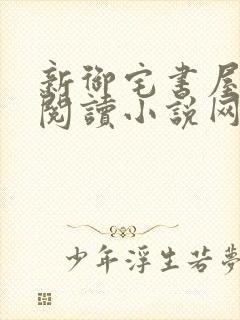 新御宅書屋
閱讀小說网
少年浮生若夢